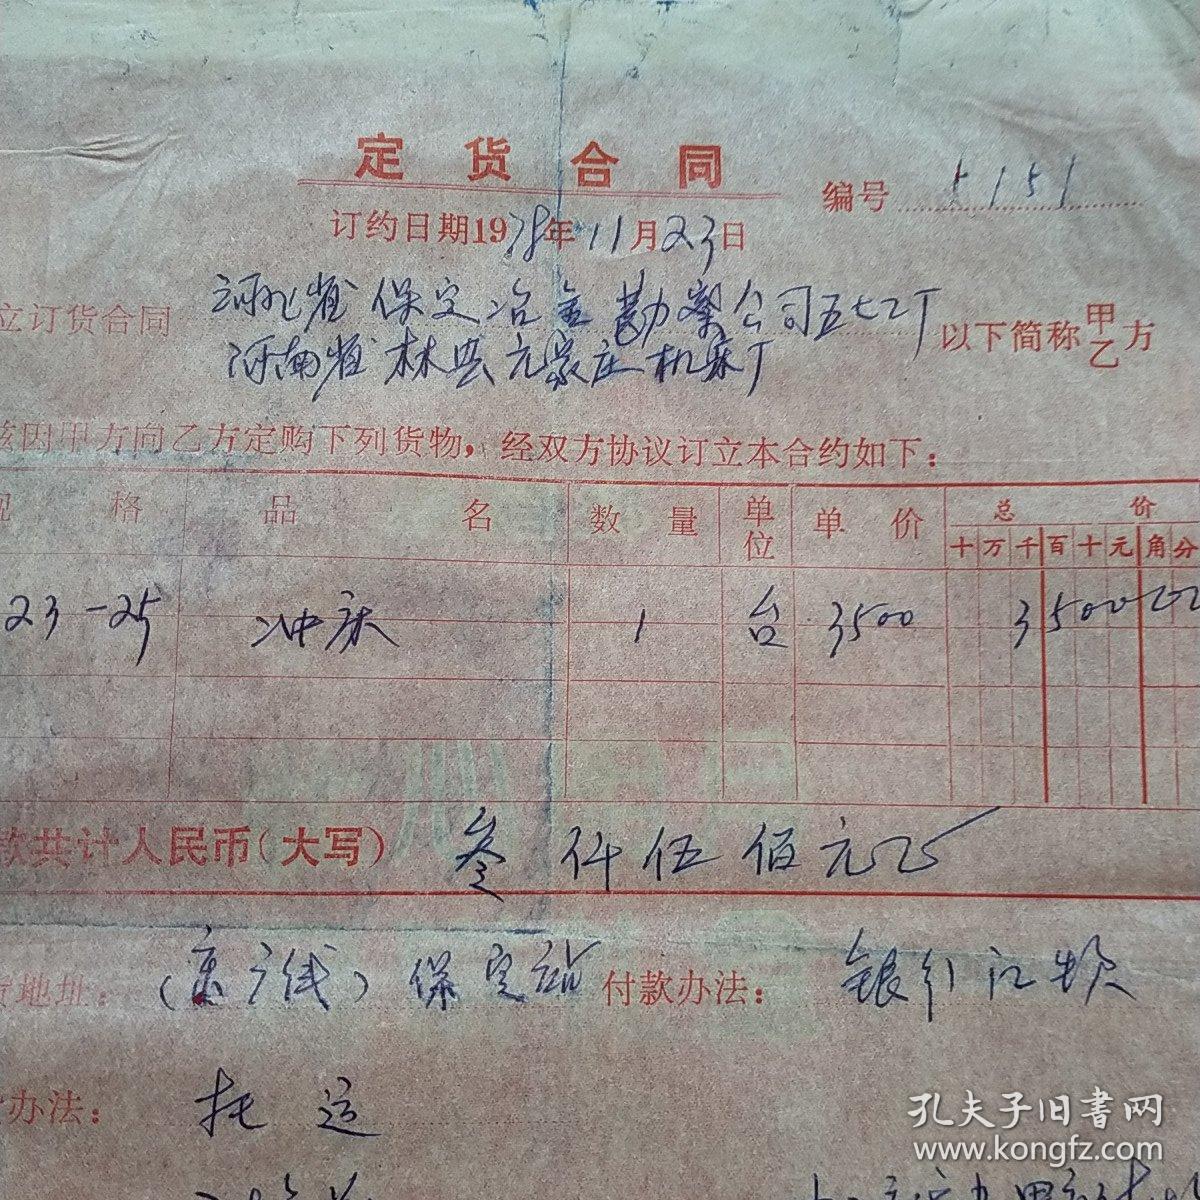 定货合同
编号 5151
订约日期1978年11月23日
立订货合同
河北省保定冶金勘察公司五七厂
河南省林县元家庄机床厂
以下简称甲乙方
兹因甲方向乙方定购下列货物，经双方协议订立本合约如下：
规格 品名 数量 单位 单价 总价
十万千百十元角分
23-25 冲床 1 台 3500 3500 00
款共计人民币（大写） 叁仟伍佰元正
货地址：（京广线）保定站 付款办法：银行汇款
办法：托运
孔夫子旧书网
www.kongfz.com